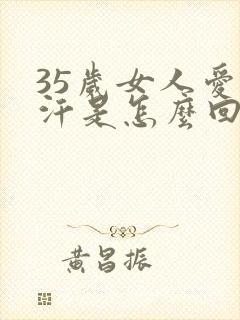 35歲女人愛
汗是怎麼回
黃昌振